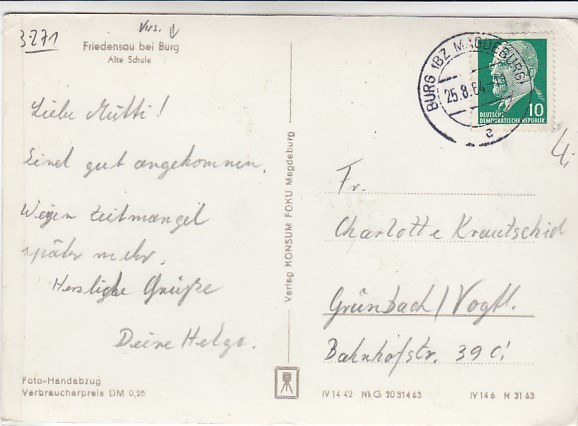 3271
Friedensau bei Burg
Alte Schule
Liebe Mutti!
Sind gut angekommen.
Wegen Zeitmangel
später mehr.
Herzliche Grüße
Deine Helga.
Foto-Handabzug
Verbraucherpreis DM 0,25
Verlag KONSUM FOKU Magdeburg
BURG (BZ. MAGDEBURG)
25.8.64
a
10
DEUTSCHE
DEMOKRATISCHE REPUBLIK
Fr.
Charlotte Krautschid
Grünbach/Vogtl.
Bahnhofstr. 39 c
IV 14 42 NkG 20 314 63 IV 14 6 N 31 63